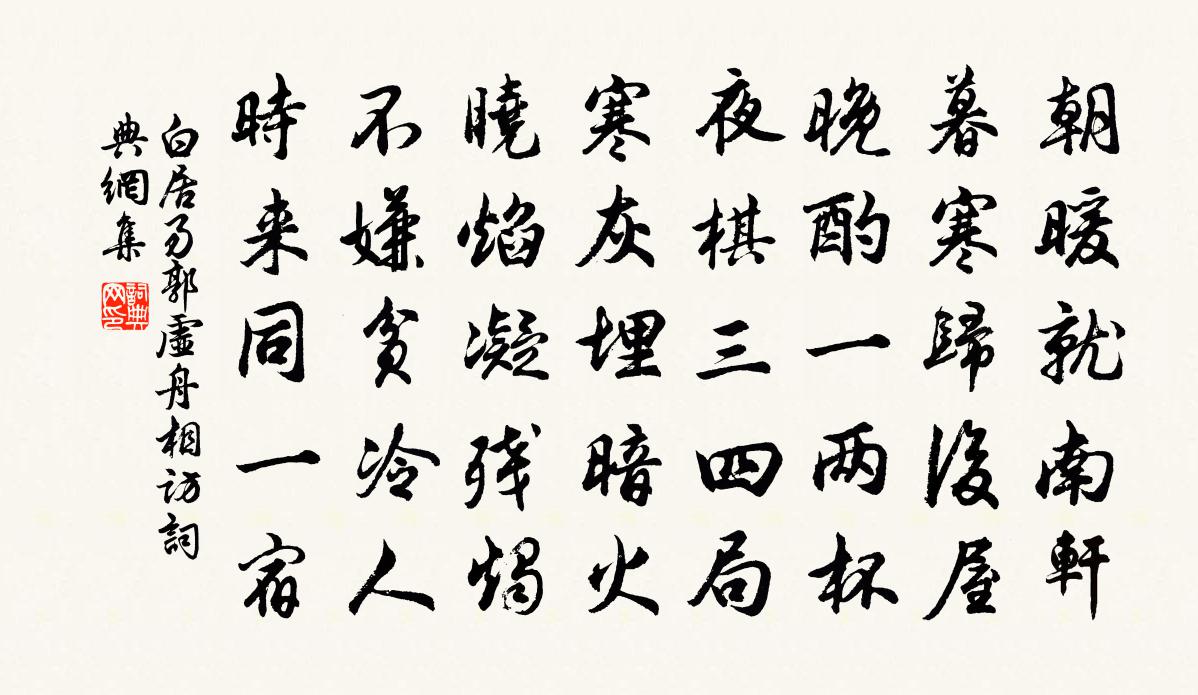 朝暖就南軒
暮寒歸後屋
晚酌一兩杯
夜棋三四局
寒灰埋暗火
曉焰凝残燭
不嫌貧冷人
時来同一宿
白居易郭虚舟相訪詞
典網集
詞典
网印